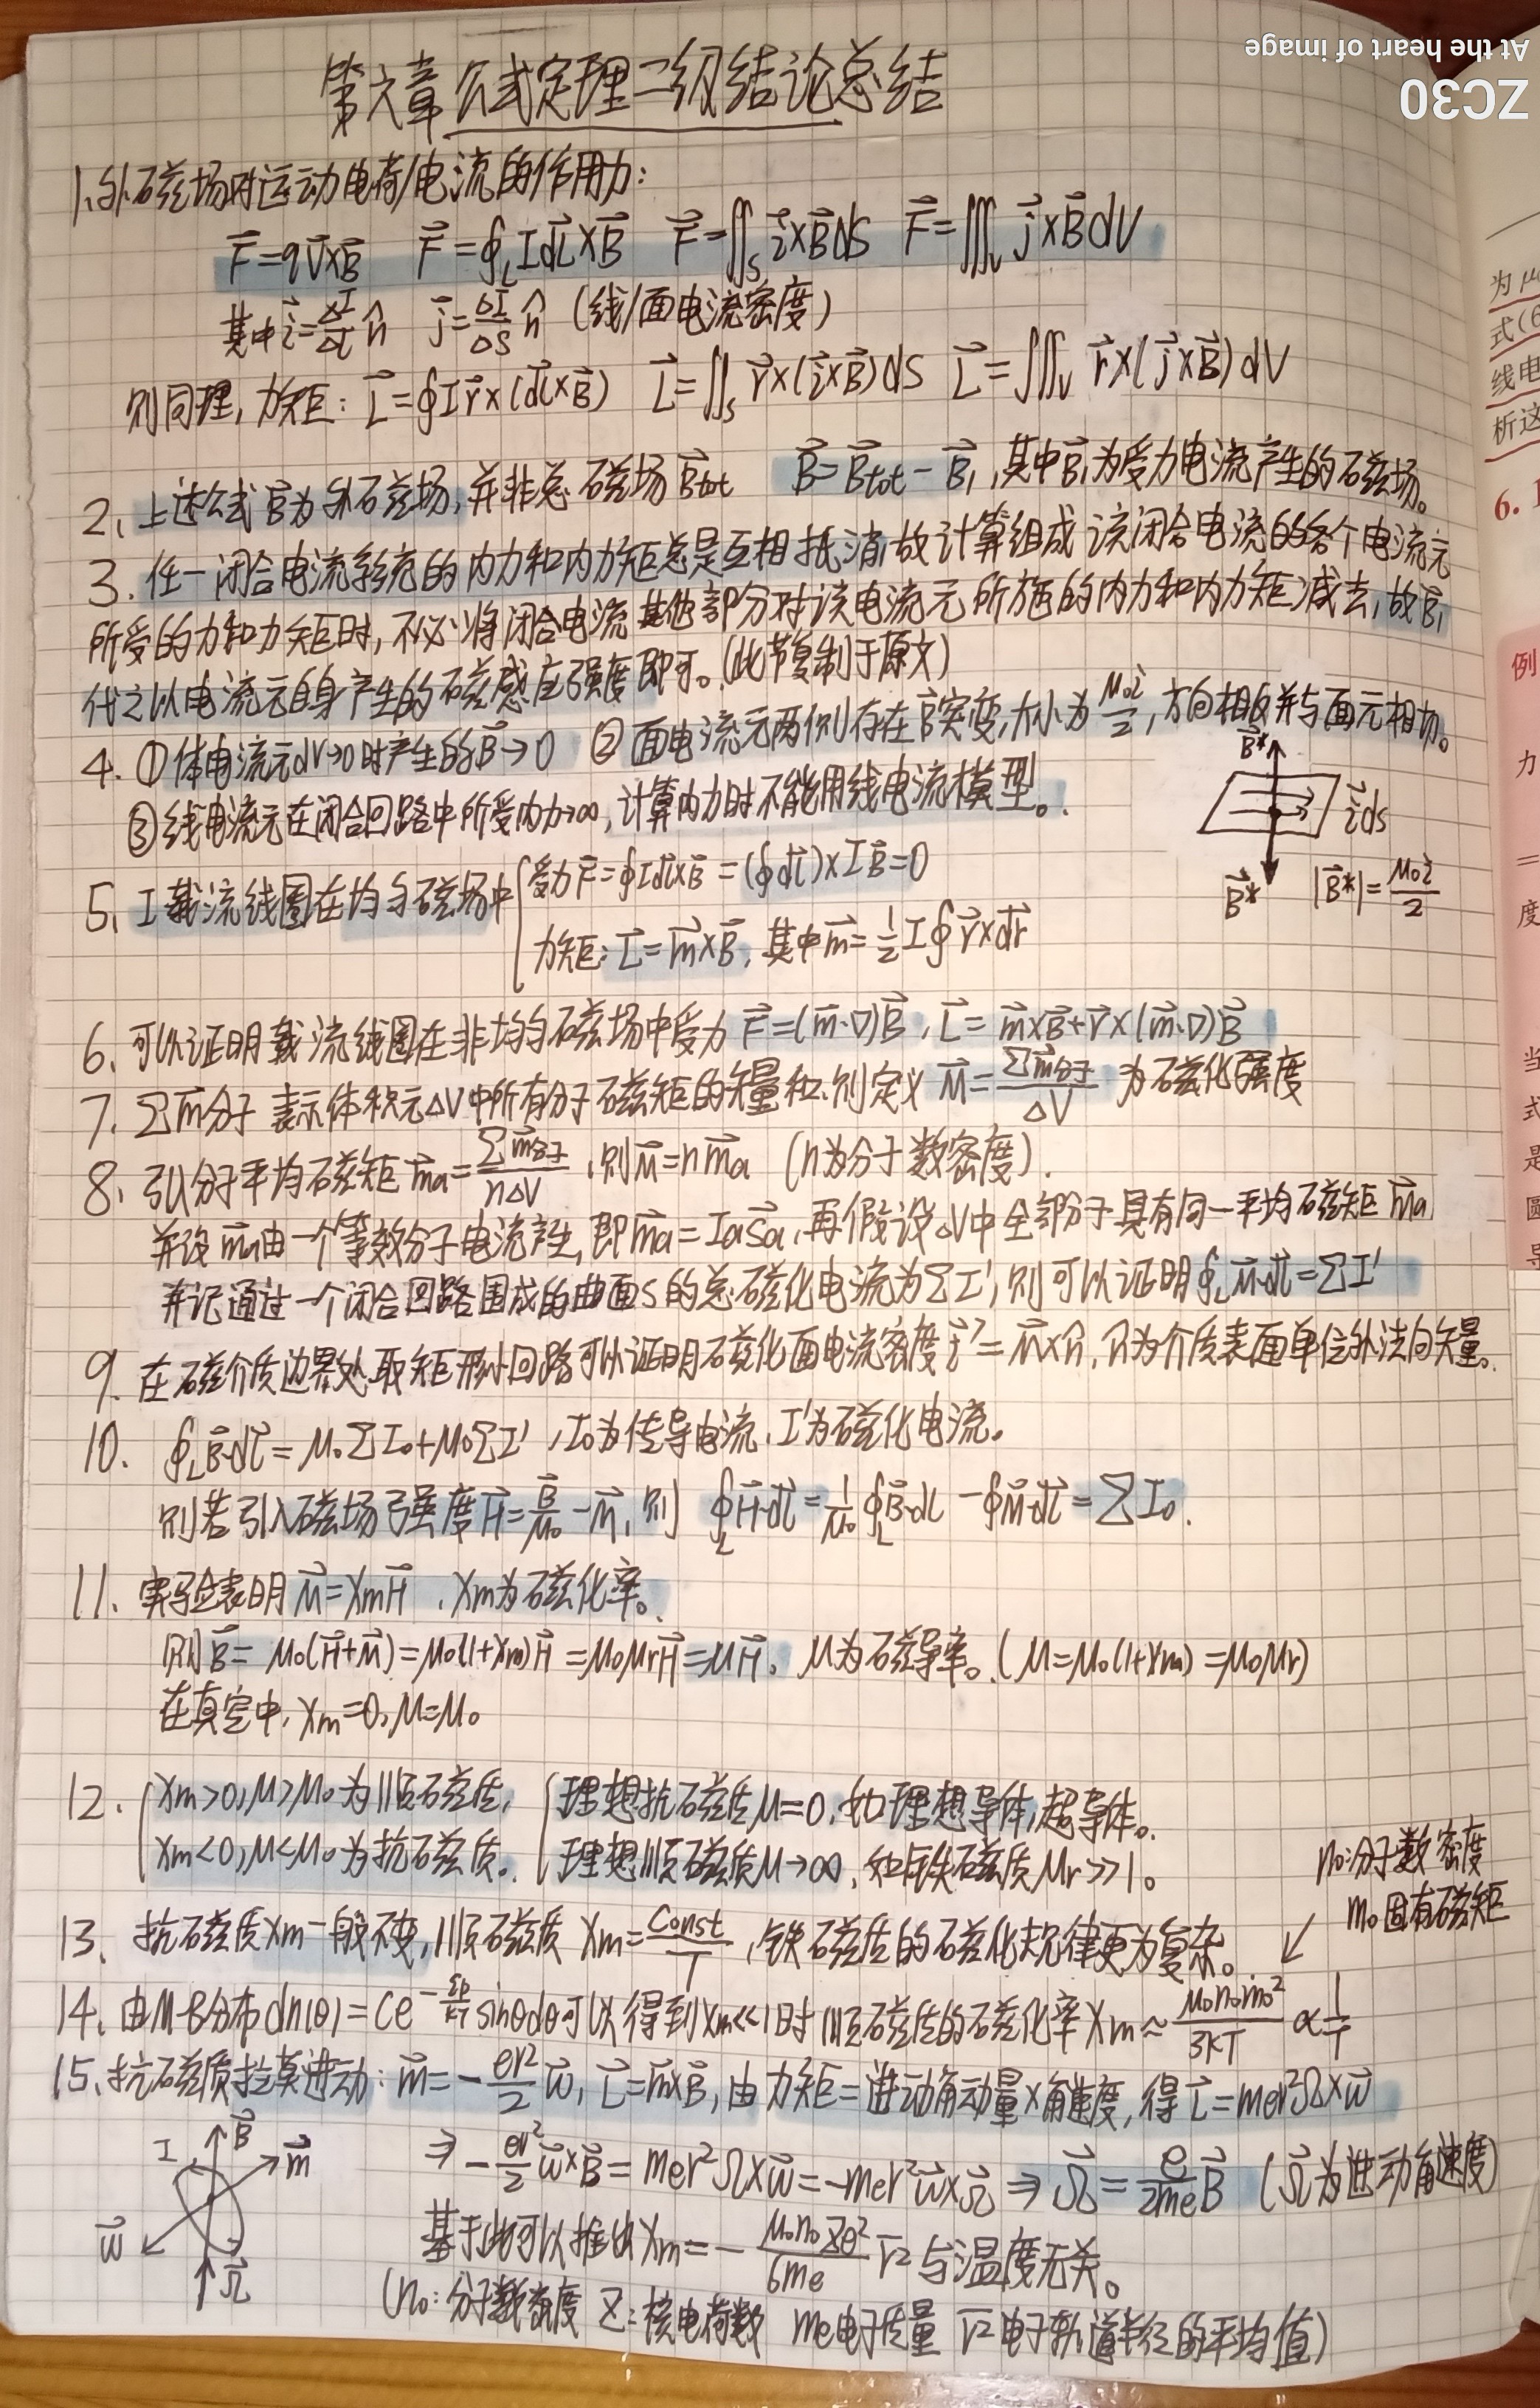 At the heart of image
ZC30
第六章 公式定理二级结论总结
1、外磁场对运动电荷/电流的作用力:
F⃗=qv⃗×B⃗ F⃗=∮_L Idl⃗×B⃗ F⃗=∬_S i⃗×B⃗dS F⃗=∭_V j⃗×B⃗dV
其中i⃗=ΔI/Δl n̂ j⃗=ΔI/ΔS n̂ (线/面电流密度)
则同理,力矩: L⃗=∮Ir⃗×(dl⃗×B⃗) L⃗=∬_S r⃗×(i⃗×B⃗)dS L⃗=∭_V r⃗×(j⃗×B⃗)dV
2、上述公式B⃗为外磁场,并非总磁场B⃗tot B⃗=B⃗tot-B⃗₁,其中B⃗₁为受力电流产生的磁场。
3.任一闭合电流系统的内力和内力矩总是互相抵消,故计算组成该闭合电流的各个电流元
所受的力和力矩时,不必将闭合电流其他部分对该电流元所施的内力和内力矩减去,故B⃗₁
代之以电流元自身产生的磁感应强度即可。(此节复制于原文)
4.①体电流元dV→0时产生的B⃗→0 ②面电流元两侧存在B⃗突变,大小为μ₀i/2,方向相反并与面元相切。
③线电流元在闭合回路中所受内力→∞,计算内力时不能用线电流模型。
B⃗* i⃗ds
B⃗* |B⃗*|=μ₀i/2
5、I载流线圈在均匀磁场中{受力F⃗=∮Idl⃗×B⃗=(∮dl⃗)×IB⃗=0
力矩:L⃗=m⃗×B⃗,其中m⃗=1/2 I∮r⃗×dr⃗
6、可以证明载流线圈在非均匀磁场中受力F⃗=(m⃗·∇)B⃗,L⃗=m⃗×B⃗+r⃗×(m⃗·∇)B⃗
7、∑m⃗分子 表示体积元ΔV中所有分子磁矩的矢量和,则定义M⃗=∑m⃗分子/ΔV 为磁化强度
8、引入分子平均磁矩m⃗a=∑m⃗分子/nΔV,则M⃗=nm⃗a (n为分子数密度).
并设m⃗a由一个等效分子电流产生,即m⃗a=IaS⃗a,再假设ΔV中全部分子具有同一平均磁矩m⃗a
并记通过一个闭合回路围成的曲面S的总磁化电流为∑I',则可以证明∮_L M⃗·dl⃗=∑I'
9.在磁介质边界处取矩形小回路可以证明磁化面电流密度i⃗'=M⃗×n̂,n̂为介质表面单位外法向矢量。
10. ∮_L B⃗·dl⃗=μ₀∑I₀+μ₀∑I',I₀为传导电流,I'为磁化电流。
则若引入磁场强度H⃗=B⃗/μ₀-M⃗,则 ∮_L H⃗·dl⃗=1/μ₀∮_L B⃗·dl-∮M⃗·dl⃗=∑I₀.
11、实验表明M⃗=χmH⃗,χm为磁化率。
则B⃗=μ₀(H⃗+M⃗)=μ₀(1+χm)H⃗=μ₀μrH⃗=μH⃗。μ为磁导率。(μ=μ₀(1+χm)=μ₀μr)
在真空中,χm=0,μ=μ₀
12.{χm>0,μ>μ₀为顺磁质, {理想抗磁质μ=0,如理想导体,超导体。
χm<0,μ<μ₀为抗磁质。 理想顺磁质μ→∞,如铁磁质μr>>1。
n₀:分子数密度
m₀固有磁矩
13、抗磁质χm一般不变,顺磁质χm=Const/T,铁磁质的磁化规律更为复杂。
14、由M-B分布dn(θ)=Ce^(-εp/kT)sinθdθ可以得到χm<<1时顺磁质的磁化率χm≈μ₀n₀m₀²/3kT ∝1/T
15、抗磁质拉莫进动: m⃗=-er²/2 ω⃗,L⃗=m⃗×B⃗,由力矩=进动角动量×角速度,得L⃗=mer²Ω×ω⃗
I B⃗ m⃗ ω⃗ Ω⃗
⇒-er²/2 ω⃗×B⃗=mer²Ω×ω⃗=-mer²ω⃗×Ω⃗⇒Ω⃗=e/2me B⃗ (Ω⃗为进动角速度)
基于此可以推出χm=-μ₀n₀Ze²/6me r̄² 与温度无关。
(n₀:分子数密度 Z:核电荷数 me电子质量 r̄²电子轨道半径的平均值)
为μ
式(6
线电
析这
6.1
例
力
=
度
当
式
是
圆
导